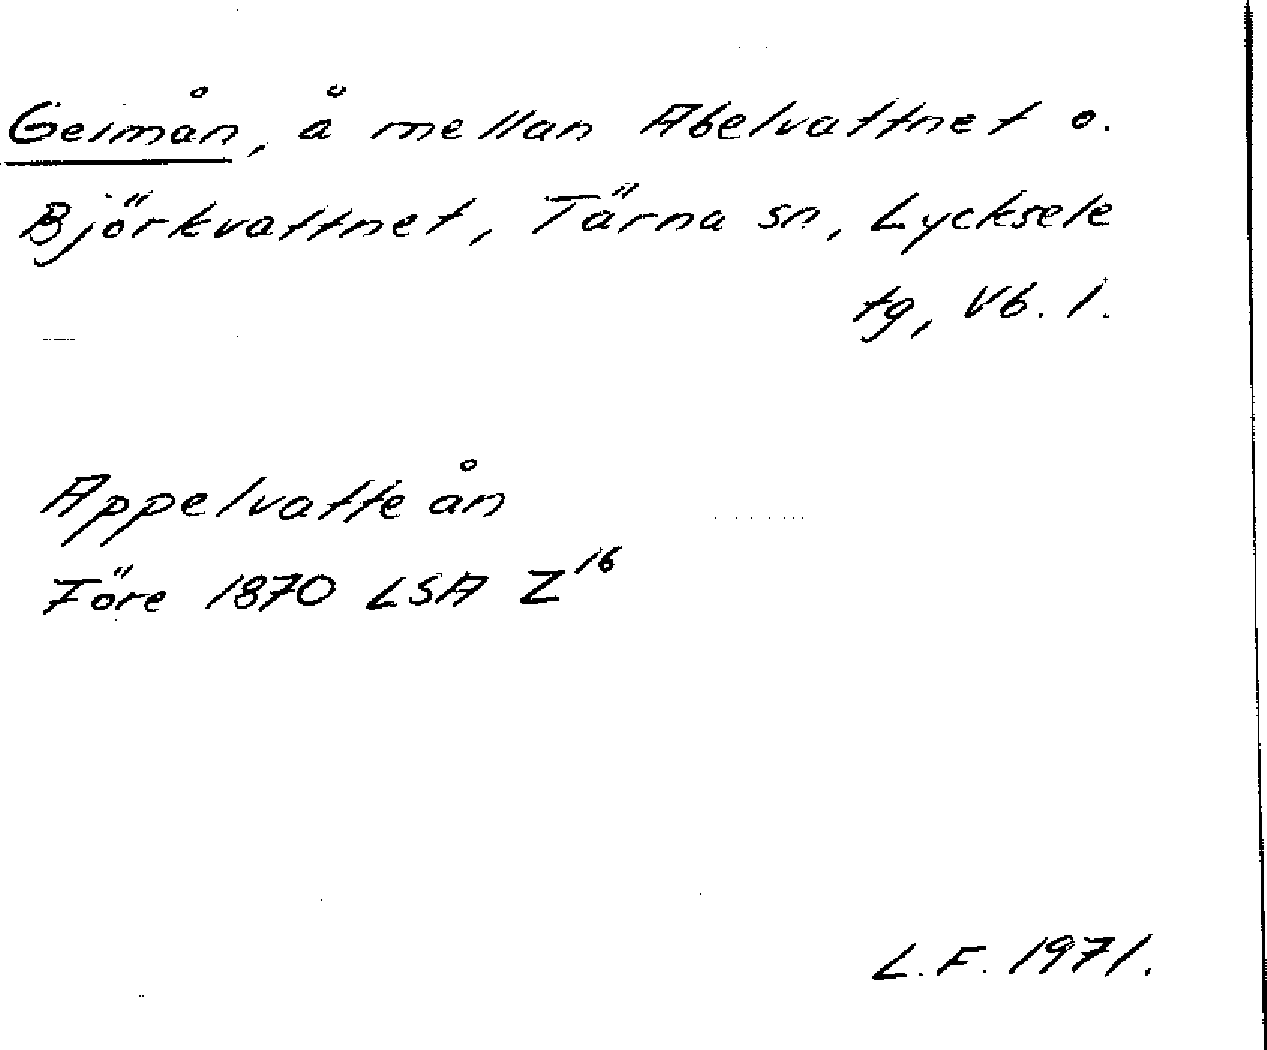 Geimån, å mellan Abelvattnet o.
Björkvattnet, Tärna sn, Lycksele
tg, Vb. l.
Appelvatteån
Före 1870 LSA Z16
L.F. 1971.